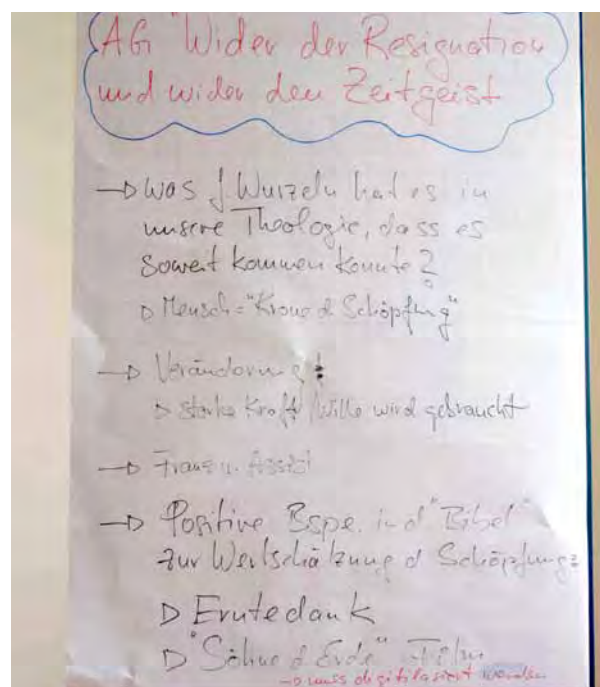 AG "Wider der Resignation
und wider den Zeitgeist
→ Was f. Wurzeln hat es in
unsere Theologie, dass es
soweit kommen konnte?
▷ Mensch = "Krone d Schöpfung"
→ Veränderung!
▷ starke Kraft / Wille wird gebraucht
→ Franz v. Assisi
→ Positive Bspe. in d "Bibel"
zur Wertschätzung d Schöpfung:
▷ Erntedank
▷ "Söhne d Erde" - Film
→ muss digitalisiert werden